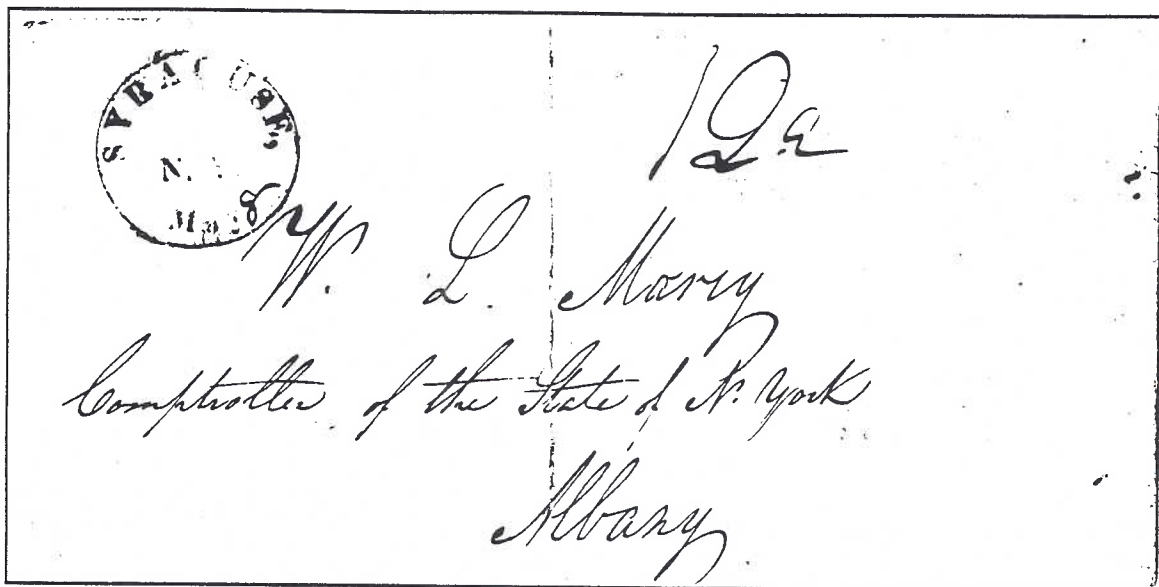 SYRACUSE,
N. Y
12½
W. L. Marcy
Comptroller of the State of N. York
Albany